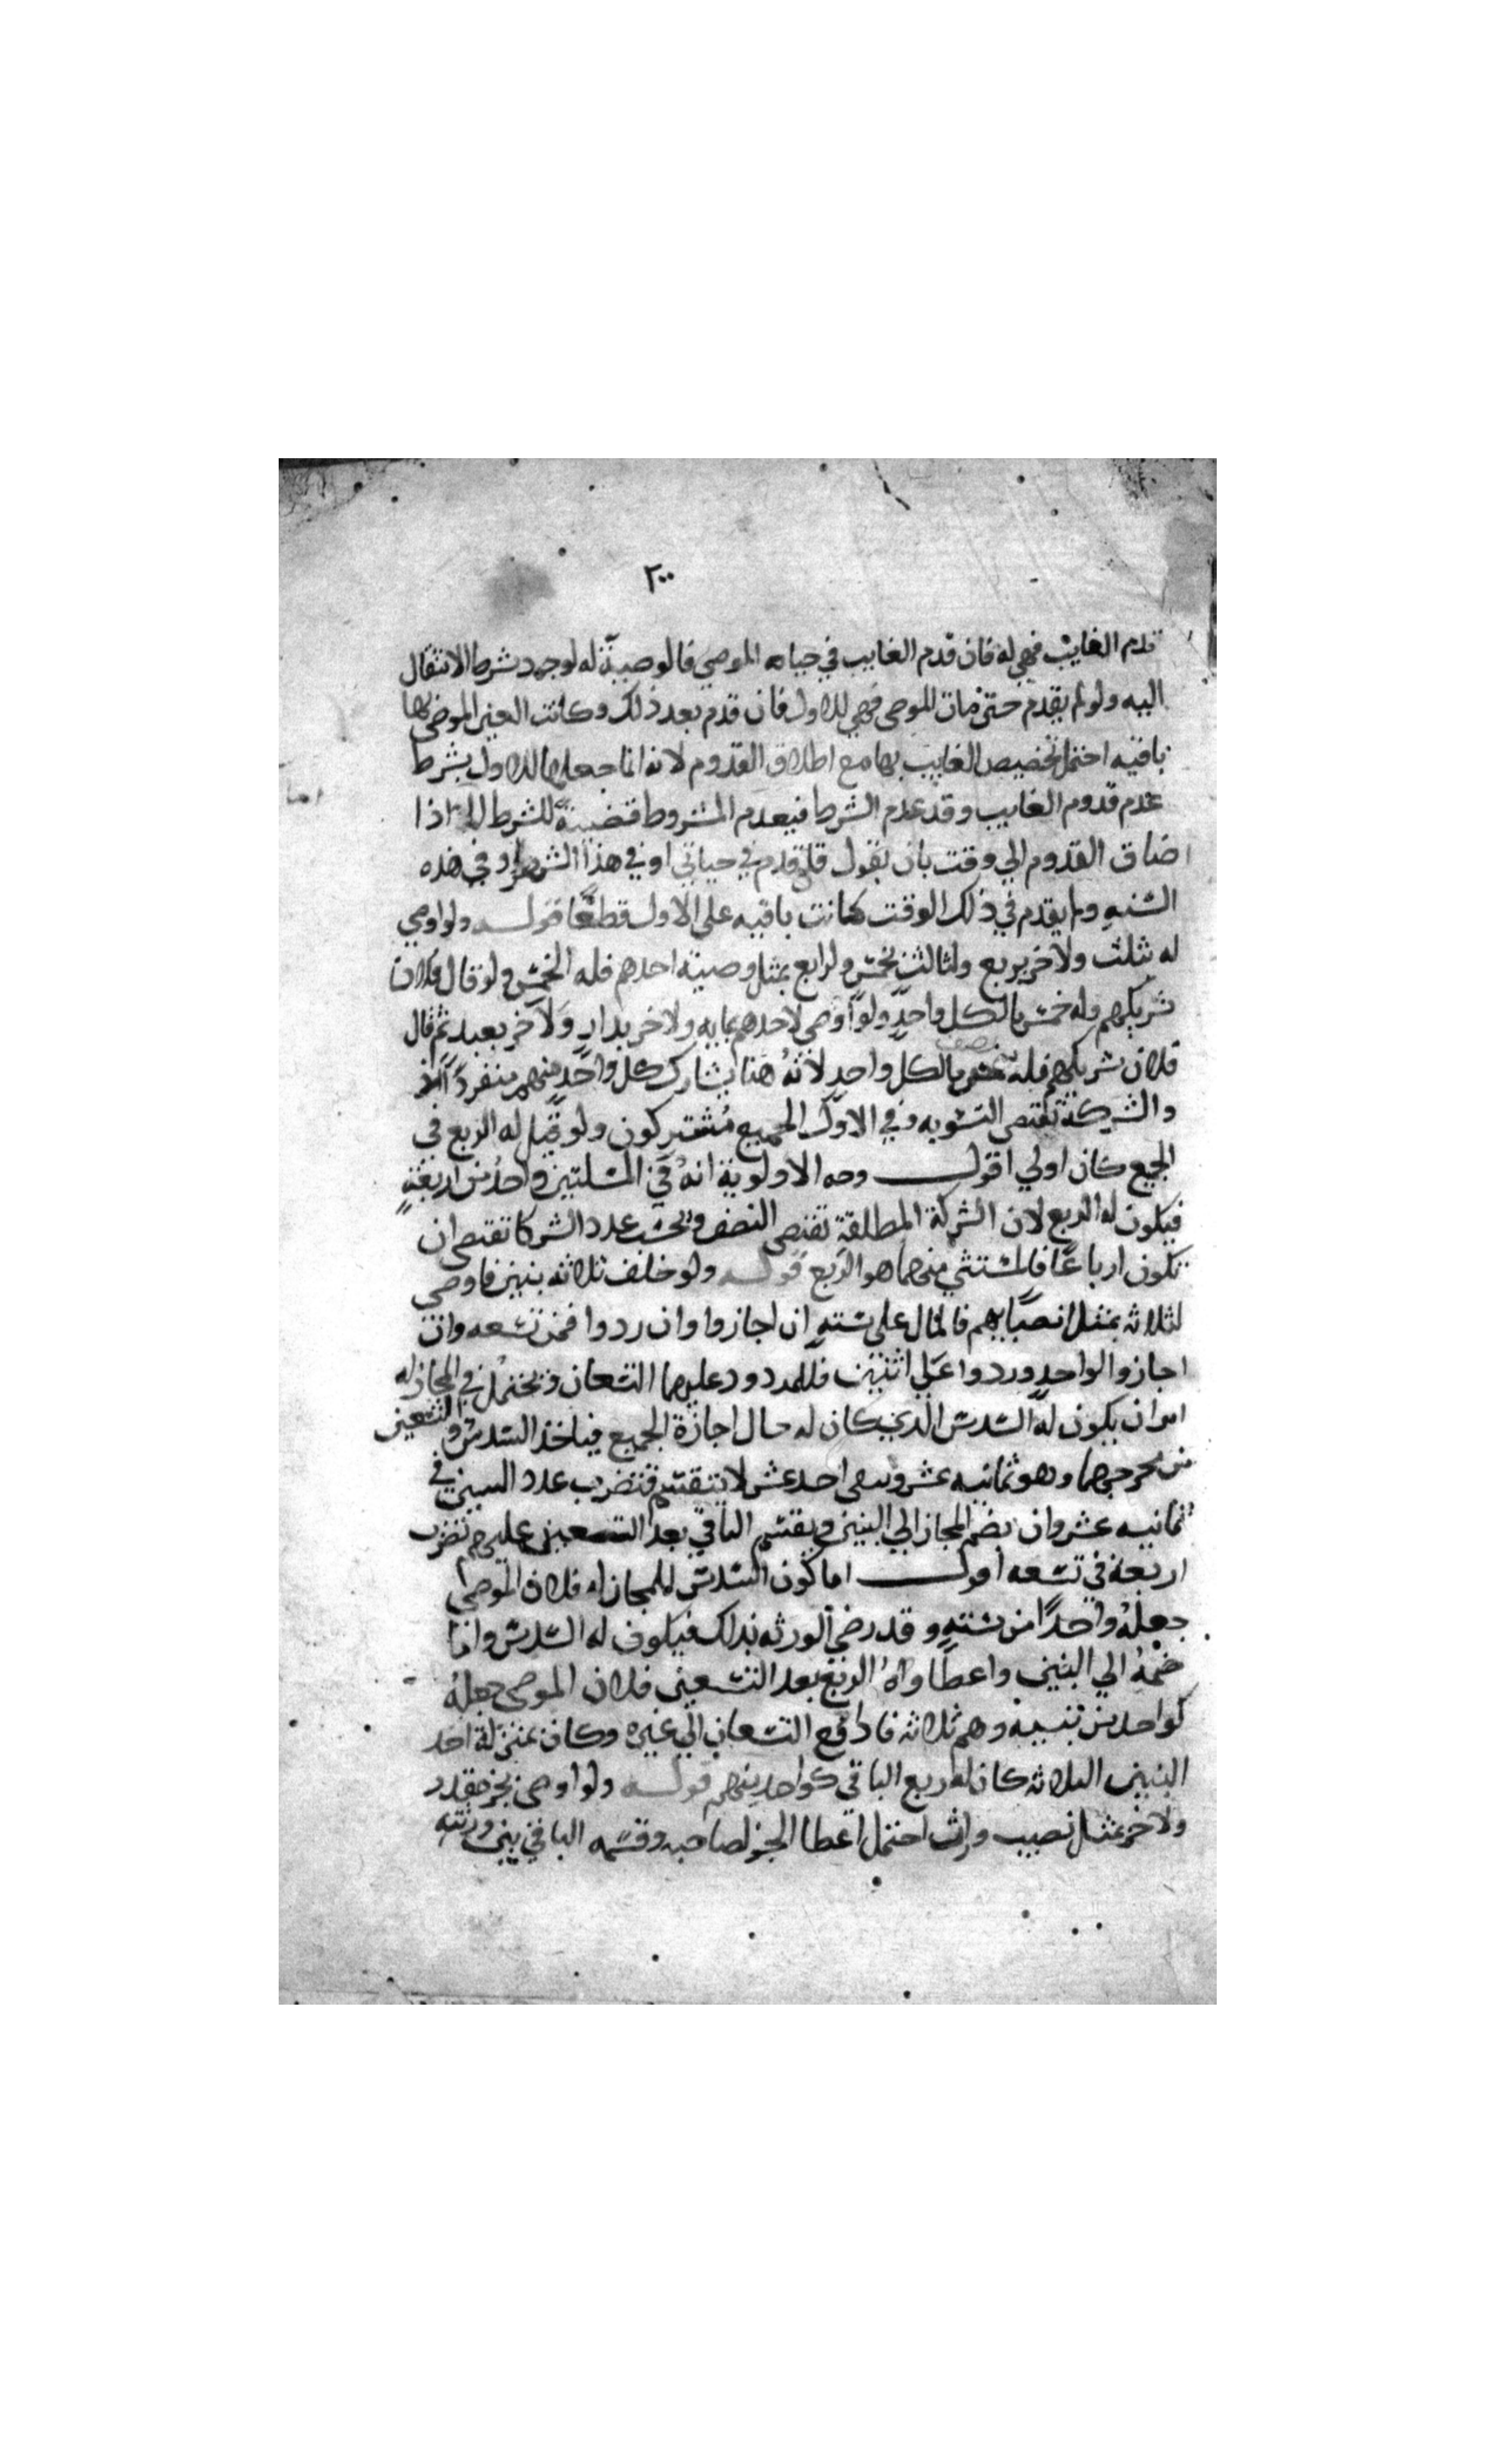 ٢٠٠
قدم الغايب فهي له فان قدم الغايب في حياه الموصي فالوصية له لوجود شرط الانتقال
اليه ولو لم يقدم حتى مات الموصى فهي للاول فان قدم بعد ذلك وكانت العين الموصى بها
باقيه احتمل تخصيص الغايب بها مع اطلاق القدوم لانه انما جعلها للاول بشرط
عدم قدوم الغايب وقد عدم الشرط فيعدم المشروط قضية للشرط اذا
اما
اضاف القدوم الي وقت بان يقول قدم في حياتي او في هذا الشهر او في هذه
السنه ولم يقدم في ذلك الوقت كانت باقيه على الاول قطعًا قولـه ولو اوصي
له بثلث ولاخر بربع ولثالث بخمس ولرابع بمثل وصية احدهم فله الخمس ولو قال فلان
شريكهم وله خمس مالكل واحدٍ ولو اوصى لاحدهم بمايه ولاخر بدارٍ ولاخر بعبد ثم قال
نصف
فلان شريكهم فله خمس مالكل واحدٍ لانهُ هنا يشارك كل واحدٍ منهم منفردًا
والشركة تقتضى التسويه وفي الاول الجميع مُشتركون ولو قيل له الربع في
الجميع كان اولي اقول وجه الاولوية انهُ في المسلتين واحدُ من اربعةٍ
فيكون له الربع لان الشركة المطلقة تقتضى النصف وبحسب عدد الشركا تقتضى ان
يكون ارباعًا فالمستثني منهما هو الربع قولـه ولو خلف ثلاثه بنين فاوصى
لثلاثه بمثل انصبايهم فالمال على ستهٍ ان اجازوا وان ردوا فمن تسعه وان
اجازوا الواحدٍ وردوا على اثنين فللمردود عليهما التسعان ويحتمل في المجاز له
امران يكون له السدس الذي كان له حال اجازة الجميع فياخذ السدس والتسعين
من مخرجهما وهو ثمانيه عشر ويبقى احد عشر لا ينقسم فتضرب عدد البنين في
ثمانيه عشر وان يضم المجاز الي البنين ويقسم الباقي بعد التسعين عليهم تضرب
اربعة في تسعه اقول اما كون السدس للمجاز له فلان الموصى
جعلهُ واحدًا من ستهٍ وقد رضي الورثه بذلك فيكون له السدس واما
ضمهُ الي البنين واعطاوهُ الربع بعد التسعين فلان الموصى جعلهُ
كواحد من بنيه وهم ثلاثه فاذا دفع التسعان الي غيره وكان بمنزلة احد
البنين الثلاثه كان له ربع الباقي كواحد منهم قولـه ولو اوصى بجز مقدر
ولاخر بمثل نصيب وارث احتمل اعطا الجز لصاحبه وقسمه الباقي بين ورثته